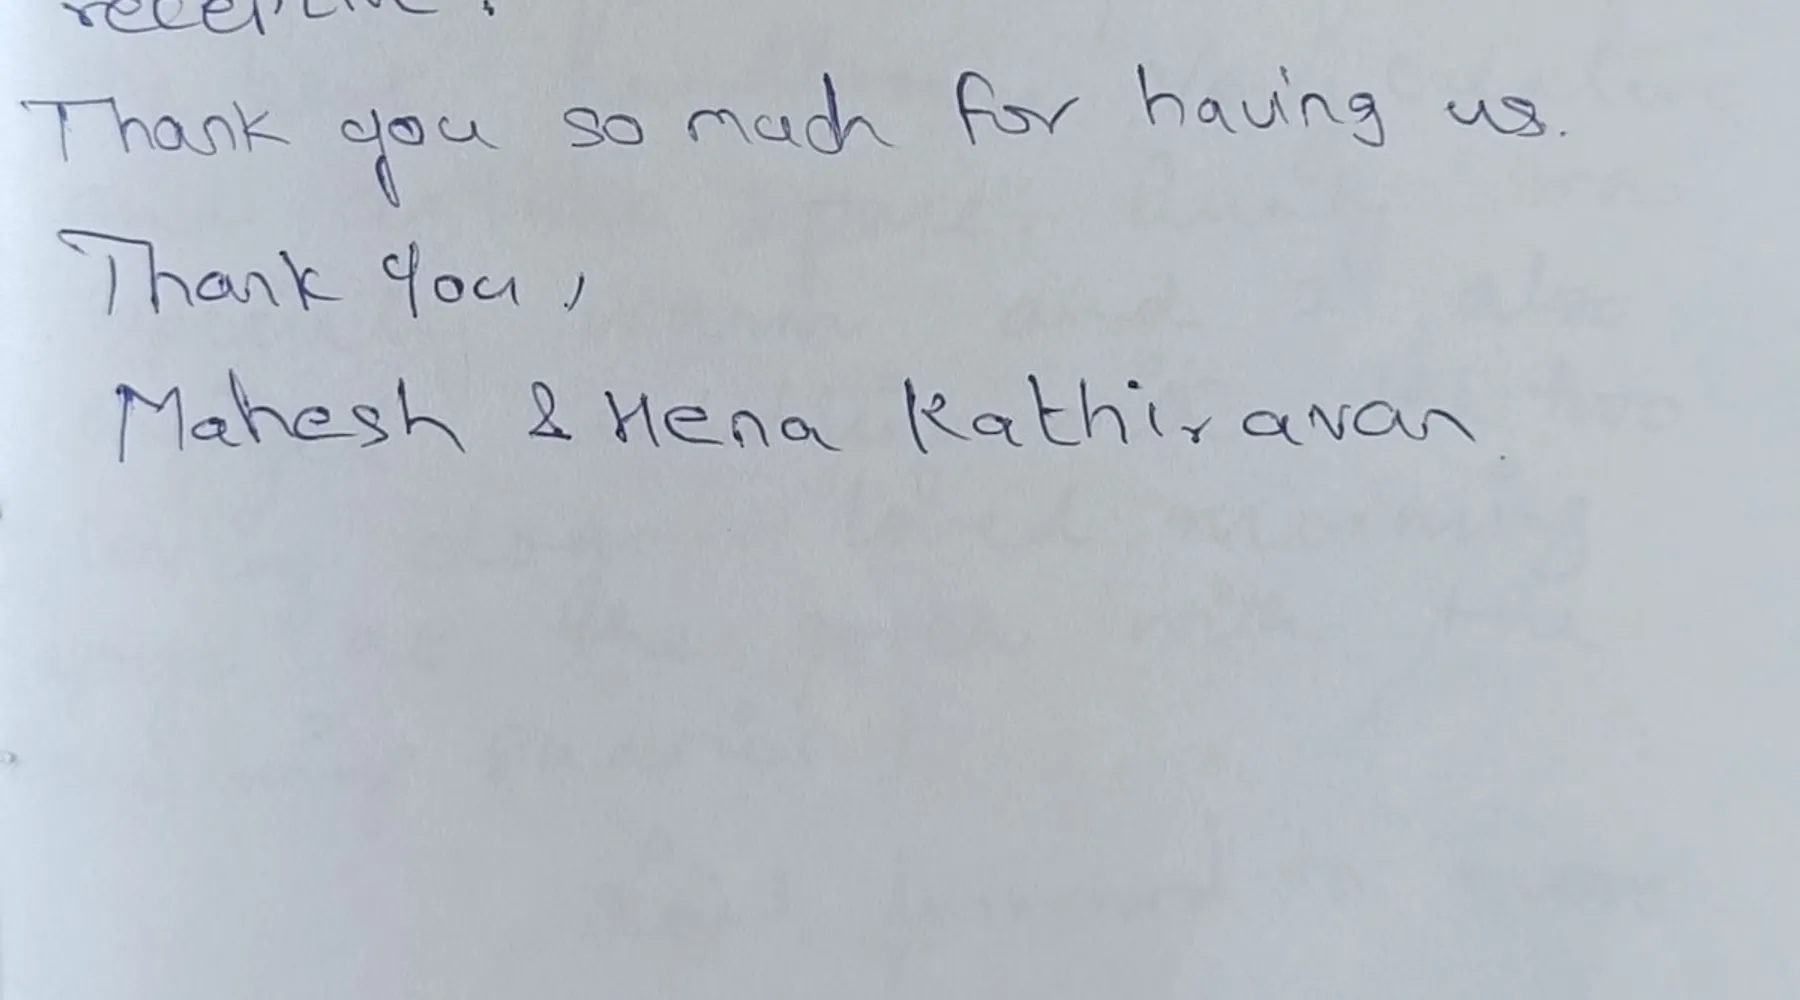 receptive.
Thank you so much for having us.
Thank You,
Mahesh & Hena Kathiravan